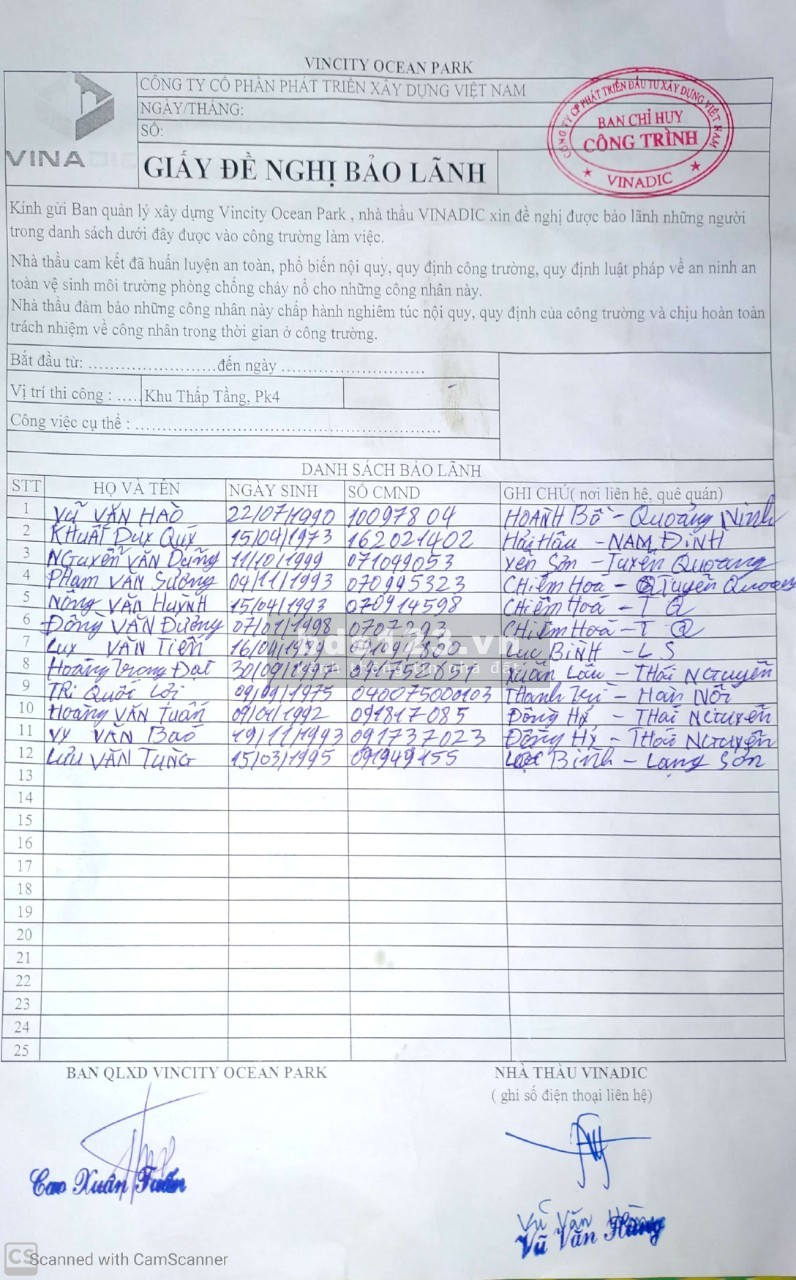 VINCITY OCEAN PARK
VINADIC
CÔNG TY CỔ PHẦN PHÁT TRIỂN XÂY DỰNG VIỆT NAM
NGÀY/THÁNG:
SỐ:
GIẤY ĐỀ NGHỊ BẢO LÃNH
CÔNG TY CP PHÁT TRIỂN ĐẦU TƯ XÂY DỰNG VIỆT NAM
BAN CHỈ HUY
CÔNG TRÌNH
★ VINADIC ★
Kính gửi Ban quản lý xây dựng Vincity Ocean Park , nhà thầu VINADIC xin đề nghị được bảo lãnh những người
trong danh sách dưới đây được vào công trường làm việc.
Nhà thầu cam kết đã huấn luyện an toàn, phổ biến nội quy, quy định công trường, quy định luật pháp về an ninh an
toàn vệ sinh môi trường phòng chống cháy nổ cho những công nhân này.
Nhà thầu đảm bảo những công nhân này chấp hành nghiêm túc nội quy, quy định của công trường và chịu hoàn toàn
trách nhiệm về công nhân trong thời gian ở công trường.
Bắt đầu từ: ........................đến ngày ...........................
Vị trí thi công : ..... Khu Thấp Tầng, Pk4 -
Công việc cụ thể : .........................................................
DANH SÁCH BẢO LÃNH
STT HỌ VÀ TÊN NGÀY SINH SỐ CMND GHI CHÚ( nơi liên hệ, quê quán)
1 VŨ VĂN HÀO 22/07/1990 10097804 HOÀNH BỒ - Quảng Ninh
2 KHUẤT Duy Quý 15/04/1973 162021402 Hải Hậu - NAM ĐỊNH
3 Nguyễn VĂN Dũng 11/10/1999 071099053 Yên Sơn - Tuyên Quang
4 PHẠM VĂN Sướng 04/11/1993 070995323 CHiêm Hoá - Tuyên Quang
5 NÔNG VĂN HuỲNH 15/04/1993 070914598 CHiêm Hoá - T Q
6 ĐỒNG VĂN Đường 07/01/1998 CHiêm Hoá - T Q
7 Luy VĂN Tiến Lục BÌNH - L S
8 Hoàng Trọng Đạt 30/09/1997 Xuân Lâu - THái Nguyên
9 Trị Quốc Lợi 09/09/1975 040075000103 Hà Nội
10 Hoàng VĂN Tuấn 09/04/1992 091817085 Đồng Hỷ - THái Nguyên
11 Vy VĂN Bảo 19/11/1993 091737023 Đồng Hỷ - THái Nguyên
12 Lưu VĂN Tùng 15/03/1995 091949155 Lộc Bình - Lạng Sơn
13
14
15
16
17
18
19
20
21
22
23
24
25
bds123.vn
BAN QLXD VINCITY OCEAN PARK
NHÀ THẦU VINADIC
( ghi số điện thoại liên hệ)
Cao Xuân Tuấn
Vũ Văn Hùng
Vũ Văn Hùng
CS Scanned with CamScanner